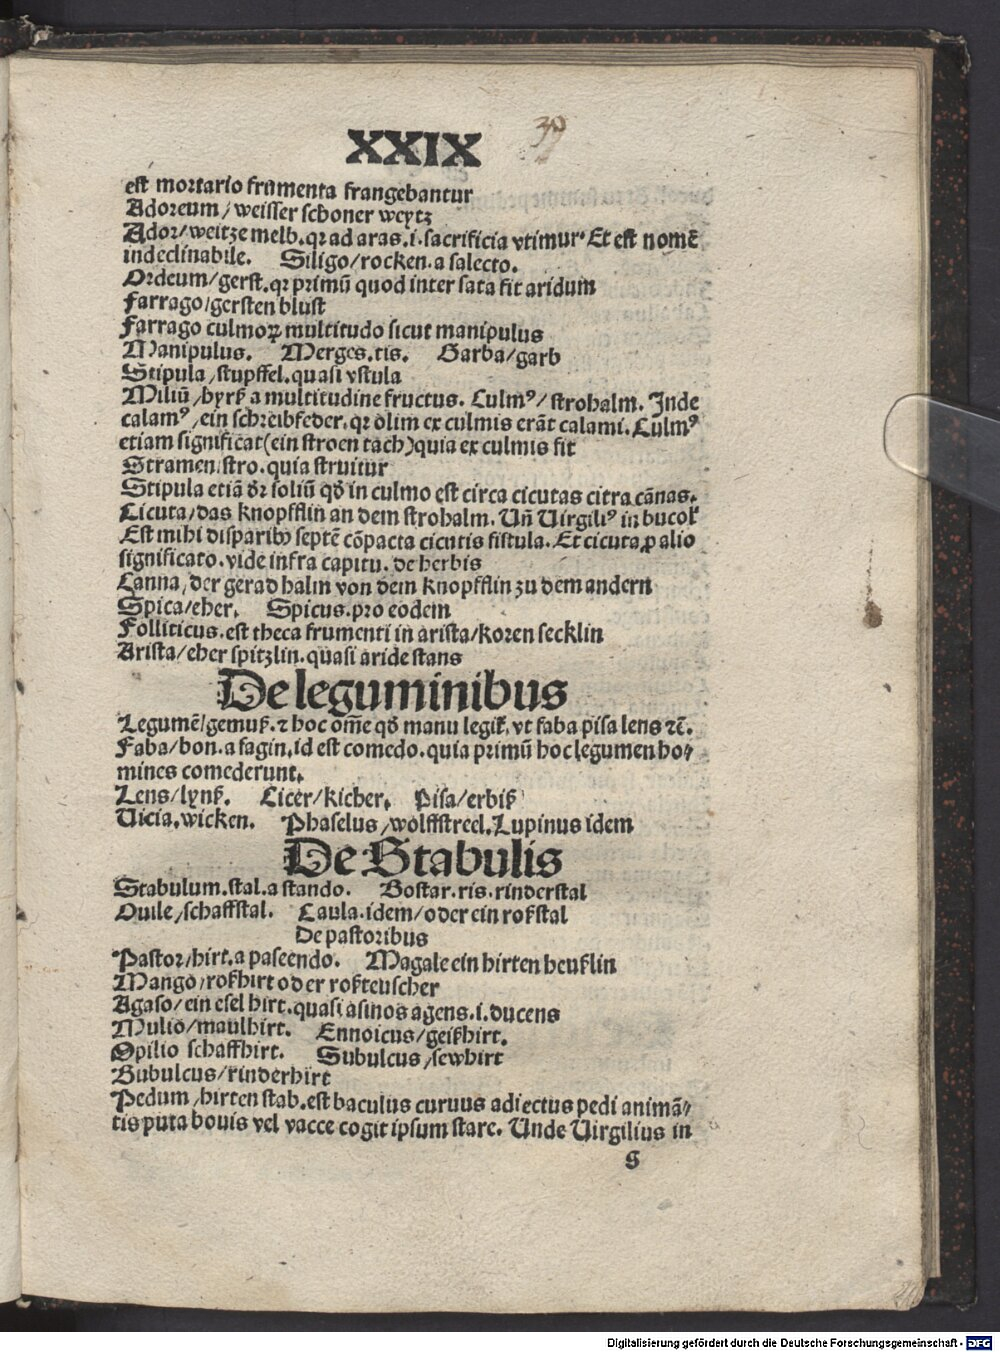 XXIX
39
est mortario frumenta frangebantur
Adoreum/weisser schoner weytz
Ador/weitze melb.qꝛ ad aras.i.sacrificia vtimur. Et est nomē
indeclinabile. Siligo/rocken.a salecto.
Ordeum/gerst.qꝛ primū quod inter sata fit aridum
Farrago/gersten blust
Farrago culmoꝝ multitudo sicut manipulus
Manipulus. Merges.tis. Garba/garb
Stipula/stupffel.quasi vstula
Miliū/hyrß a multitudine fructus. Culmꝰ/strohalm. Inde
calamꝰ/ein schreibfeder.qꝛ olim ex culmis erāt calami. Culmꝰ
etiam significat(ein stroen tach)quia ex culmis fit
Stramen/stro.quia struitur
Stipula etiā dꝛ foliū qđ in culmo est circa cicutas citra cānas.
Cicuta/das knopfflin an dem strohalm. Uñ Uirgiliꝰ in bucol'
Est mihi disparibꝫ septē cōpacta cicutis fistula. Et cicuta ꝓ alio
significato.vide infra capitu.de herbis
Canna/der gerad halm von dem knopfflin zu dem andern
Spica/eher. Spicus.pro eodem
Folliticus.est theca frumenti in arista/koren secklin
Arista/eher spitzlin.quasi aride stans
De leguminibus
Legumē/gemuß.⁊ hoc om̄e qđ manu legit'.vt faba pisa lens ⁊c̄.
Faba/bon.a fagin.id est comedo.quia primū hoc legumen ho/
mines comederunt.
Lens/lynß. Cicer/kicher. Pisa/erbiß
Uicia.wicken. Phaselus/wolffstreel.Lupinus idem
De Stabulis
Stabulum.stal.a stando. Bostar.ris.rinderstal
Ouile/schaffstal. Caula.idem/oder ein roßstal
De pastoribus
Pastor/hirt.a pascendo. Magale ein hirten heußlin
Mango/roßhirt oder roßteuscher
Agaso/ein esel hirt.quasi asinos agens.i.ducens
Mulio/maulhirt. Ennoicus/geißhirt.
Opilio schaffhirt. Subulcus/sewhirt
Bubulcus/rinderhirt
Pedum/hirten stab.est baculus curuus adiectus pedi animā/
tis puta bouis vel vacce cogit ipsum stare. Unde Uirgilius in
g
Digitalisierung gefördert durch die Deutsche Forschungsgemeinschaft - DFG